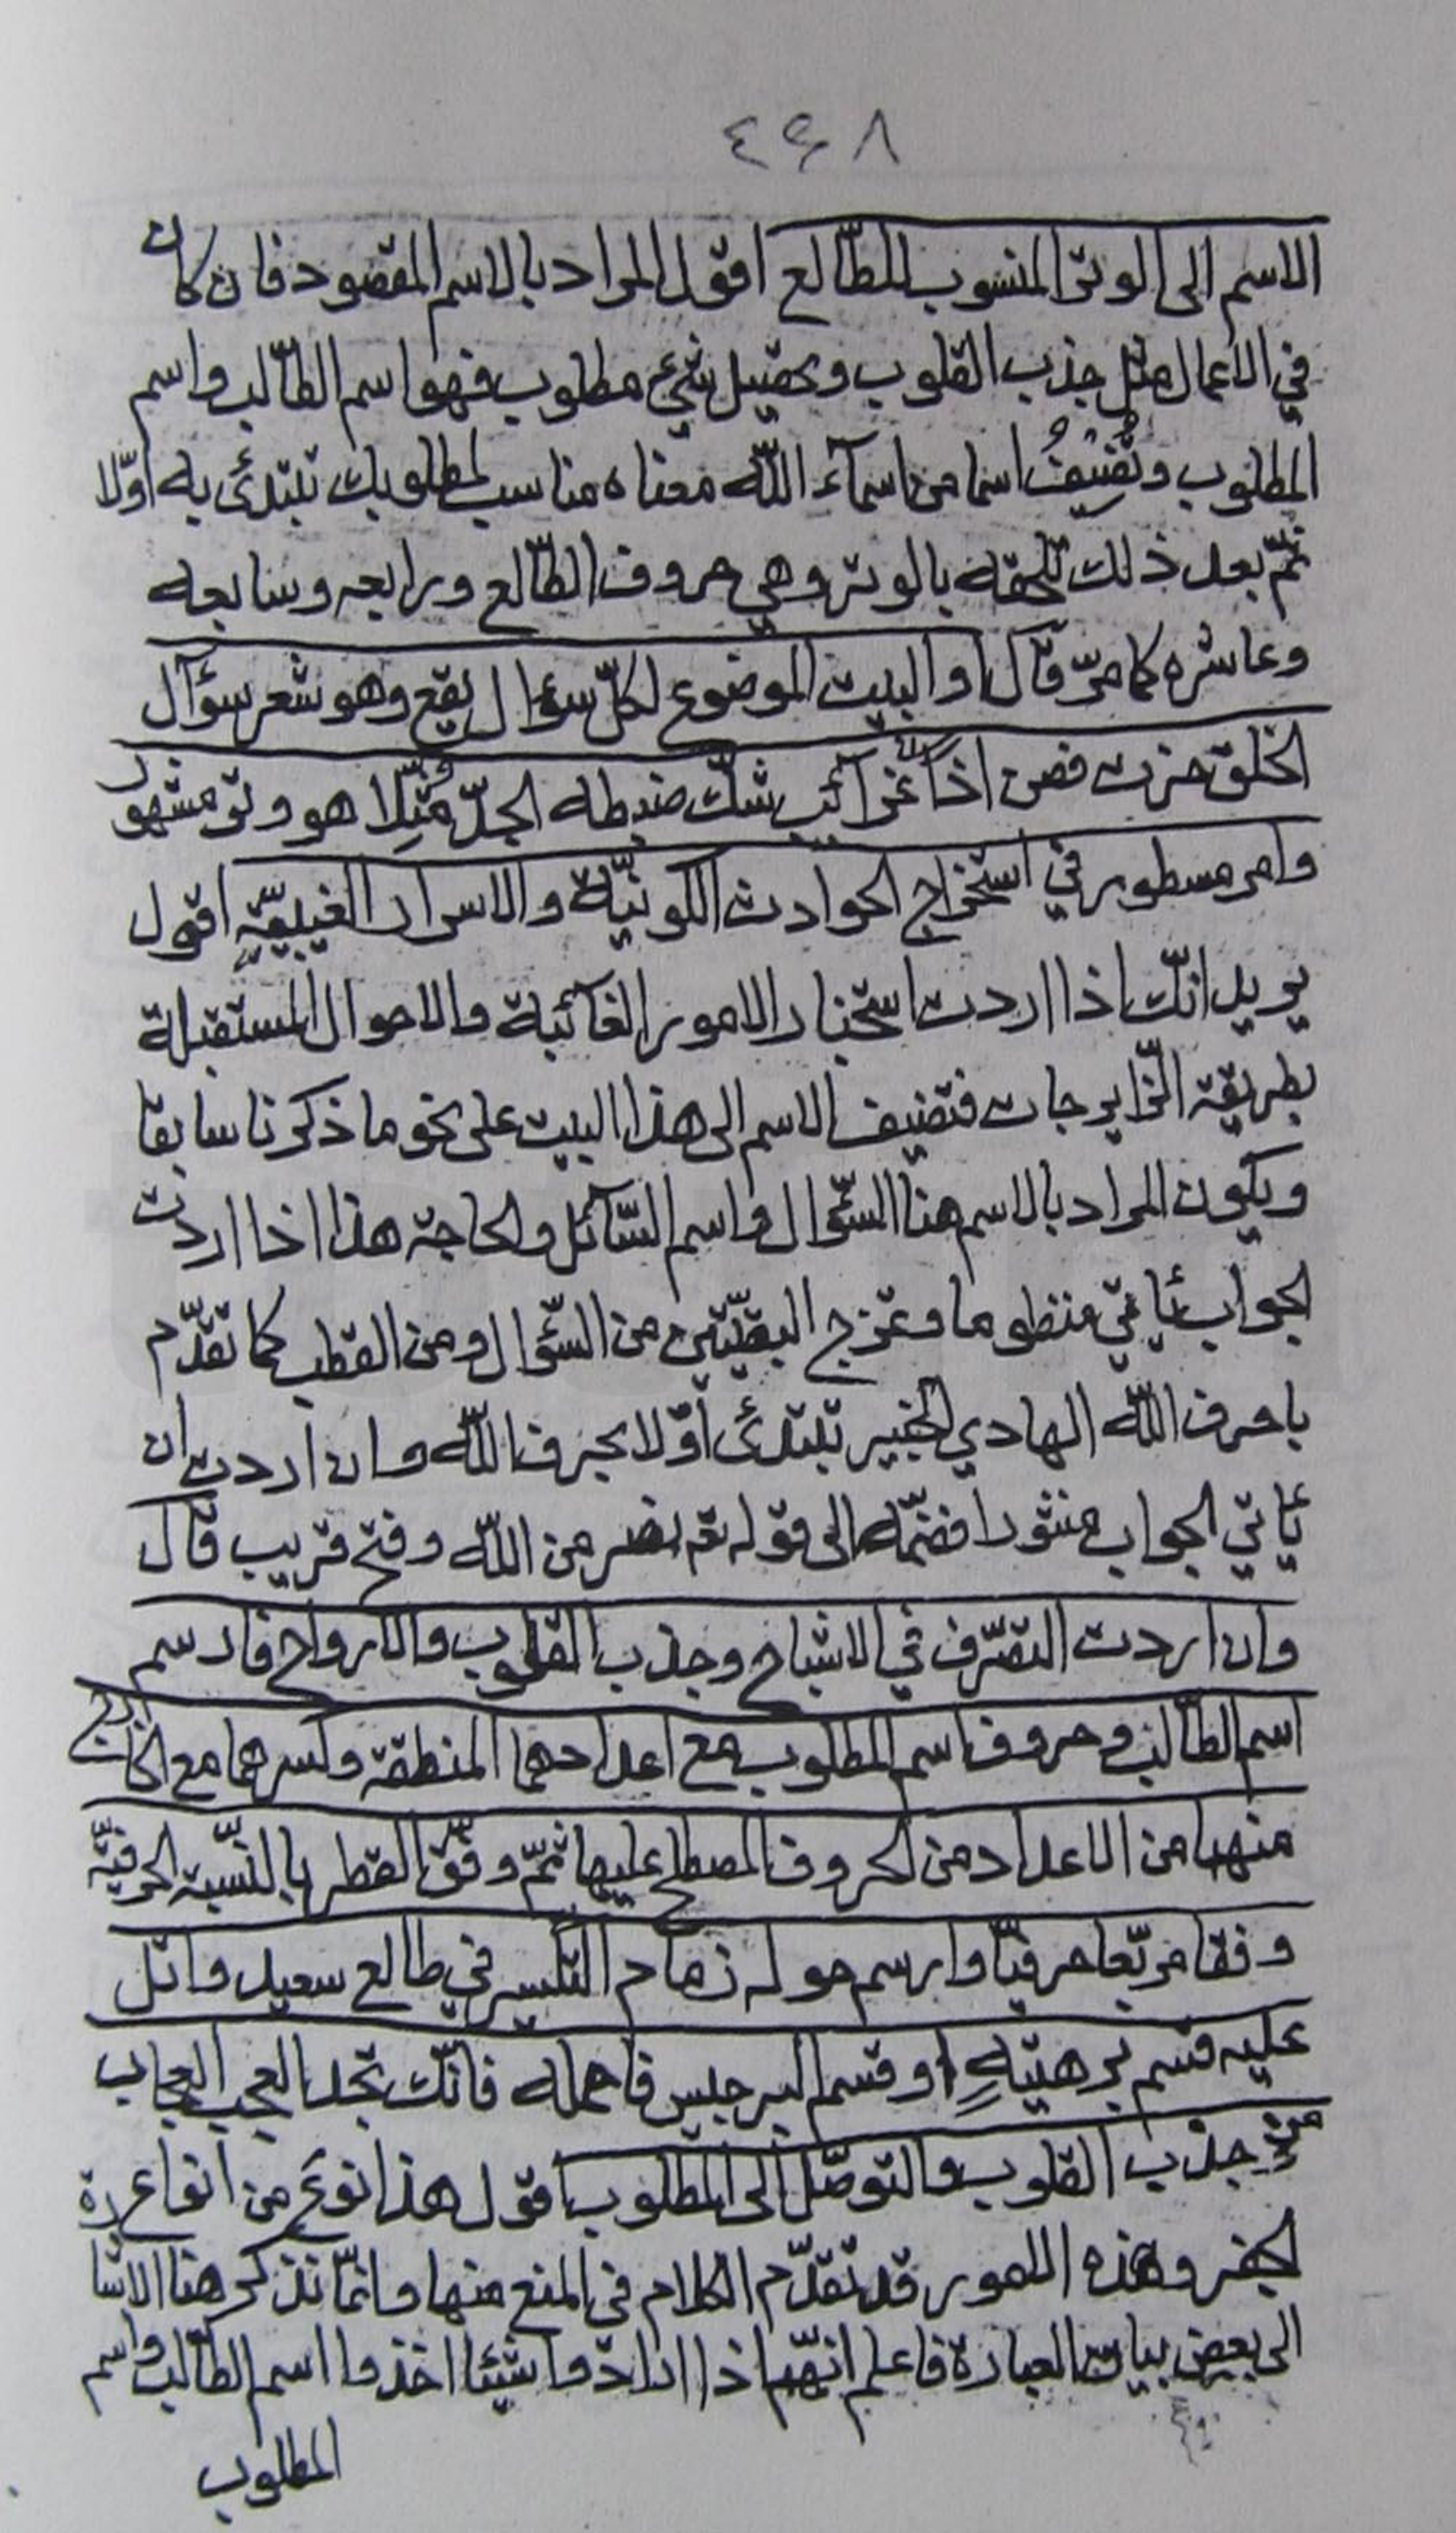 ٤٩٨
الاسم الى الوتر المنسوب للطّالع اقول المراد بالاسم المقصود فان كان
في الاعمال مثل جذب القلوب وتحصيل شيء مطلوب فهو اسم الطّالب واسم
المطلوب وتُضيفُ اسما من اسمآء اللّه معناه مناسب لمطلوبك تبتدئ به اوّلا
ثمّ بعد ذلك تلحقه بالوتر وهي حروف الطّالع ورابعه وسابعه
وعاشره كما مرّ قال او البيت الموضوع لكلّ سؤال يقع وهو شعر سؤال
الخلق حزت فصن اذا غرآئب شكّ ضبطه الجدّ مثّلا هو وتر مشهور
وامر مسطور في استخراج الحوادث الكونيّة والاسرار الغيبيّة اقول
يريد انّك اذا اردت استخبار الامور الغآئبة والاحوال المستقبلة
بطريقة الزّايرجات فتضيف الاسم الى هذا البيت على نحو ما ذكرنا سابقا
ويكون المراد بالاسم هنا السّؤال واسم السّآئل والحاجة هذا اذا اردت
الجواب يأتي منظوما وتمزج البقيّتين من السّؤال ومن القطب كما تقدّم
باحرف اللّه الهادي الخبير تبتدئ اوّلا بحرف اللّه وان اردت ان
يأتي الجواب منثورا فضمّه الى قوله تع نصر من اللّه وفتح قريب قال
وان اردت التصّرف في الاشباح وجذب القلوب والارواح فارسم
اسم الطّالب وحروف اسم المطلوب مع اعدادهما المنطقة وكسرهما مع الخارج
منهما من الاعداد من الحروف المصطلح عليها ثمّ وفّق القطر بالنّسبة الحرفيّة
وفقا مربّعا حرفيّا وارسم حوله زمام التكسير في طالع سعيد واتل
عليه قسم برهتيةٍ او قسم البرجيس فاحمله فانّك تجد العجب العجاب
من جذب القلوب والتوصّل الى المطلوب اقول هذا نوع من انواع
الجفر وهذه الامور قد تقدّم الكلام في المنع منها وانمّا نذكر هنا الاشارة
الى بعض بيان العبارة فاعلم انهّم اذا ارادوا شيئا اخذوا اسم الطّالب واسم
المطلوب